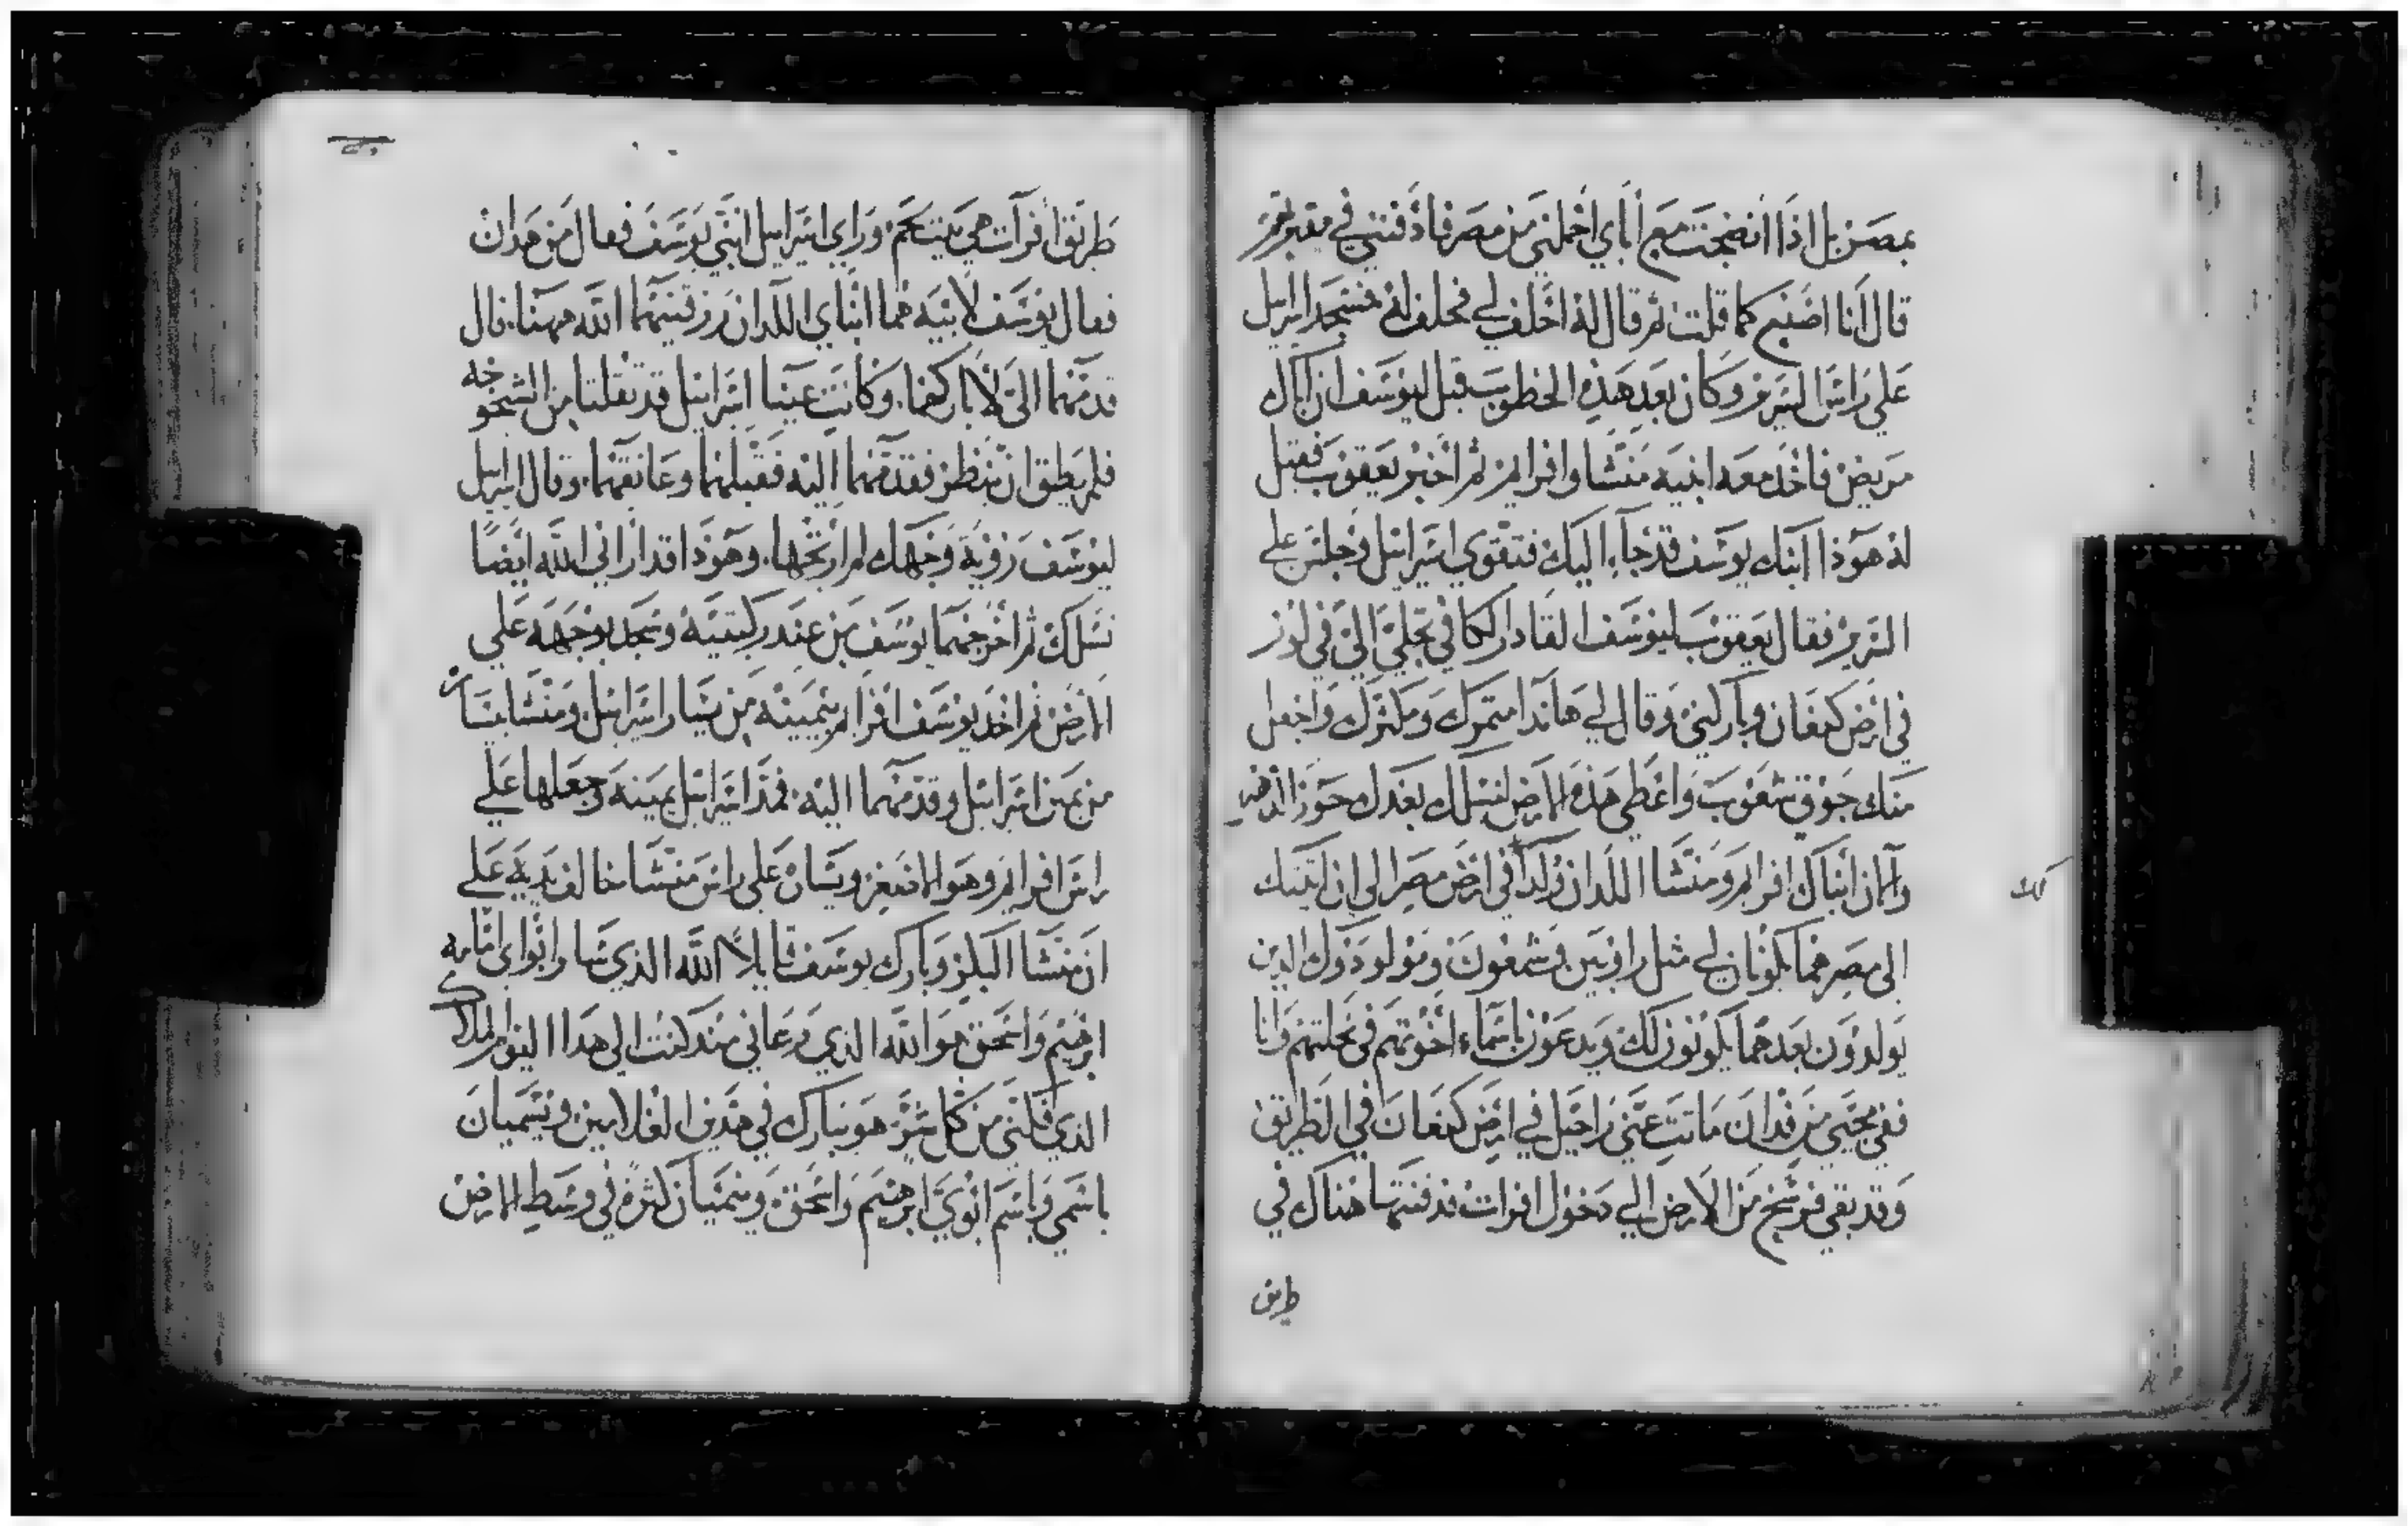 بمصر بل اذا انضجعت مع أباي احملني من مصر فادفنني في مقبرتهم
قال أنا اصنع كما قلت ثم قال له احلف لي فحلف له فسجد اسراييل
على راس السرير وكان بعد هذه الخطوب قيل ليوسف ان اباك
مريض فاخذ معه ابنيه منشا وافرايم ثم اخبر يعقوب فقيل
له هوذا ابنك يوسف قد جاء اليك فتقوي اسراييل وجلس على
السرير فقال يعقوب ليوسف القادر الكافي تجلي الي في لوز
في ارض كنعان وباركني وقال لي هانذا مثمرك ومكثرك واجعل
منك جوق شعوب واعطي هذه الارض لنسلك بعدك حوز الدهر
والان ابناك افرايم ومنشا اللدان ولدا في ارض مصر الى ان اتيتك
الى مصر هما يكونان لي مثل راوبين وشمعون ومولودوك الدين
يولدون بعدهما يكونون لك ويدعون باسماء اخوتهم في نحلتهم وانا
ففي مجيي من فدان ماتت عني راحيل في ارض كنعان في الطريق
وقد بقي فرسخ من الارض الى دخول افرات فدفنتها هناك في
طريق
طريق افرات هي بيت لحم وراي اسراييل ابني يوسف فقال من هدان
فقال يوسف لابيه هما ابناي اللدان رزقنيهما الله ههنا قال
قدمهما الي لاباركهما وكانت عينا اسراييل قد ثقلتا من الشيخوخه
فلم يطق ان ينظر فقدمهما اليه فقبلهما وعانقهما وقال اسراييل
ليوسف رؤية وجهك لم ارتجها وهوذا قد اراني الله ايضا
نسلك ثم اخرجهما يوسف من عند ركبتيه وسجد بوجهه على
الارض ثم اخذ يوسف افرايم بيمينه من يسار اسراييل ومنشا بيساره
من يمين اسراييل وقدمهما اليه فمد اسراييل يمينه وجعلها على
راس افرايم وهو الاصغر ويساره على راس منشا خالف يديه على
ان منشا البكر وبارك يوسف قايلا الله الذي سار ابواي امامه
ابرهيم واسحق هو الله الذي رعاني منذ كنت الى هذا اليوم الملاك
الذي فكني من كل شر هو يبارك في هذين الغلامين ويسميان
باسمي وباسم ابوي ابرهيم واسحق وينميان كثرة في وسط الارض